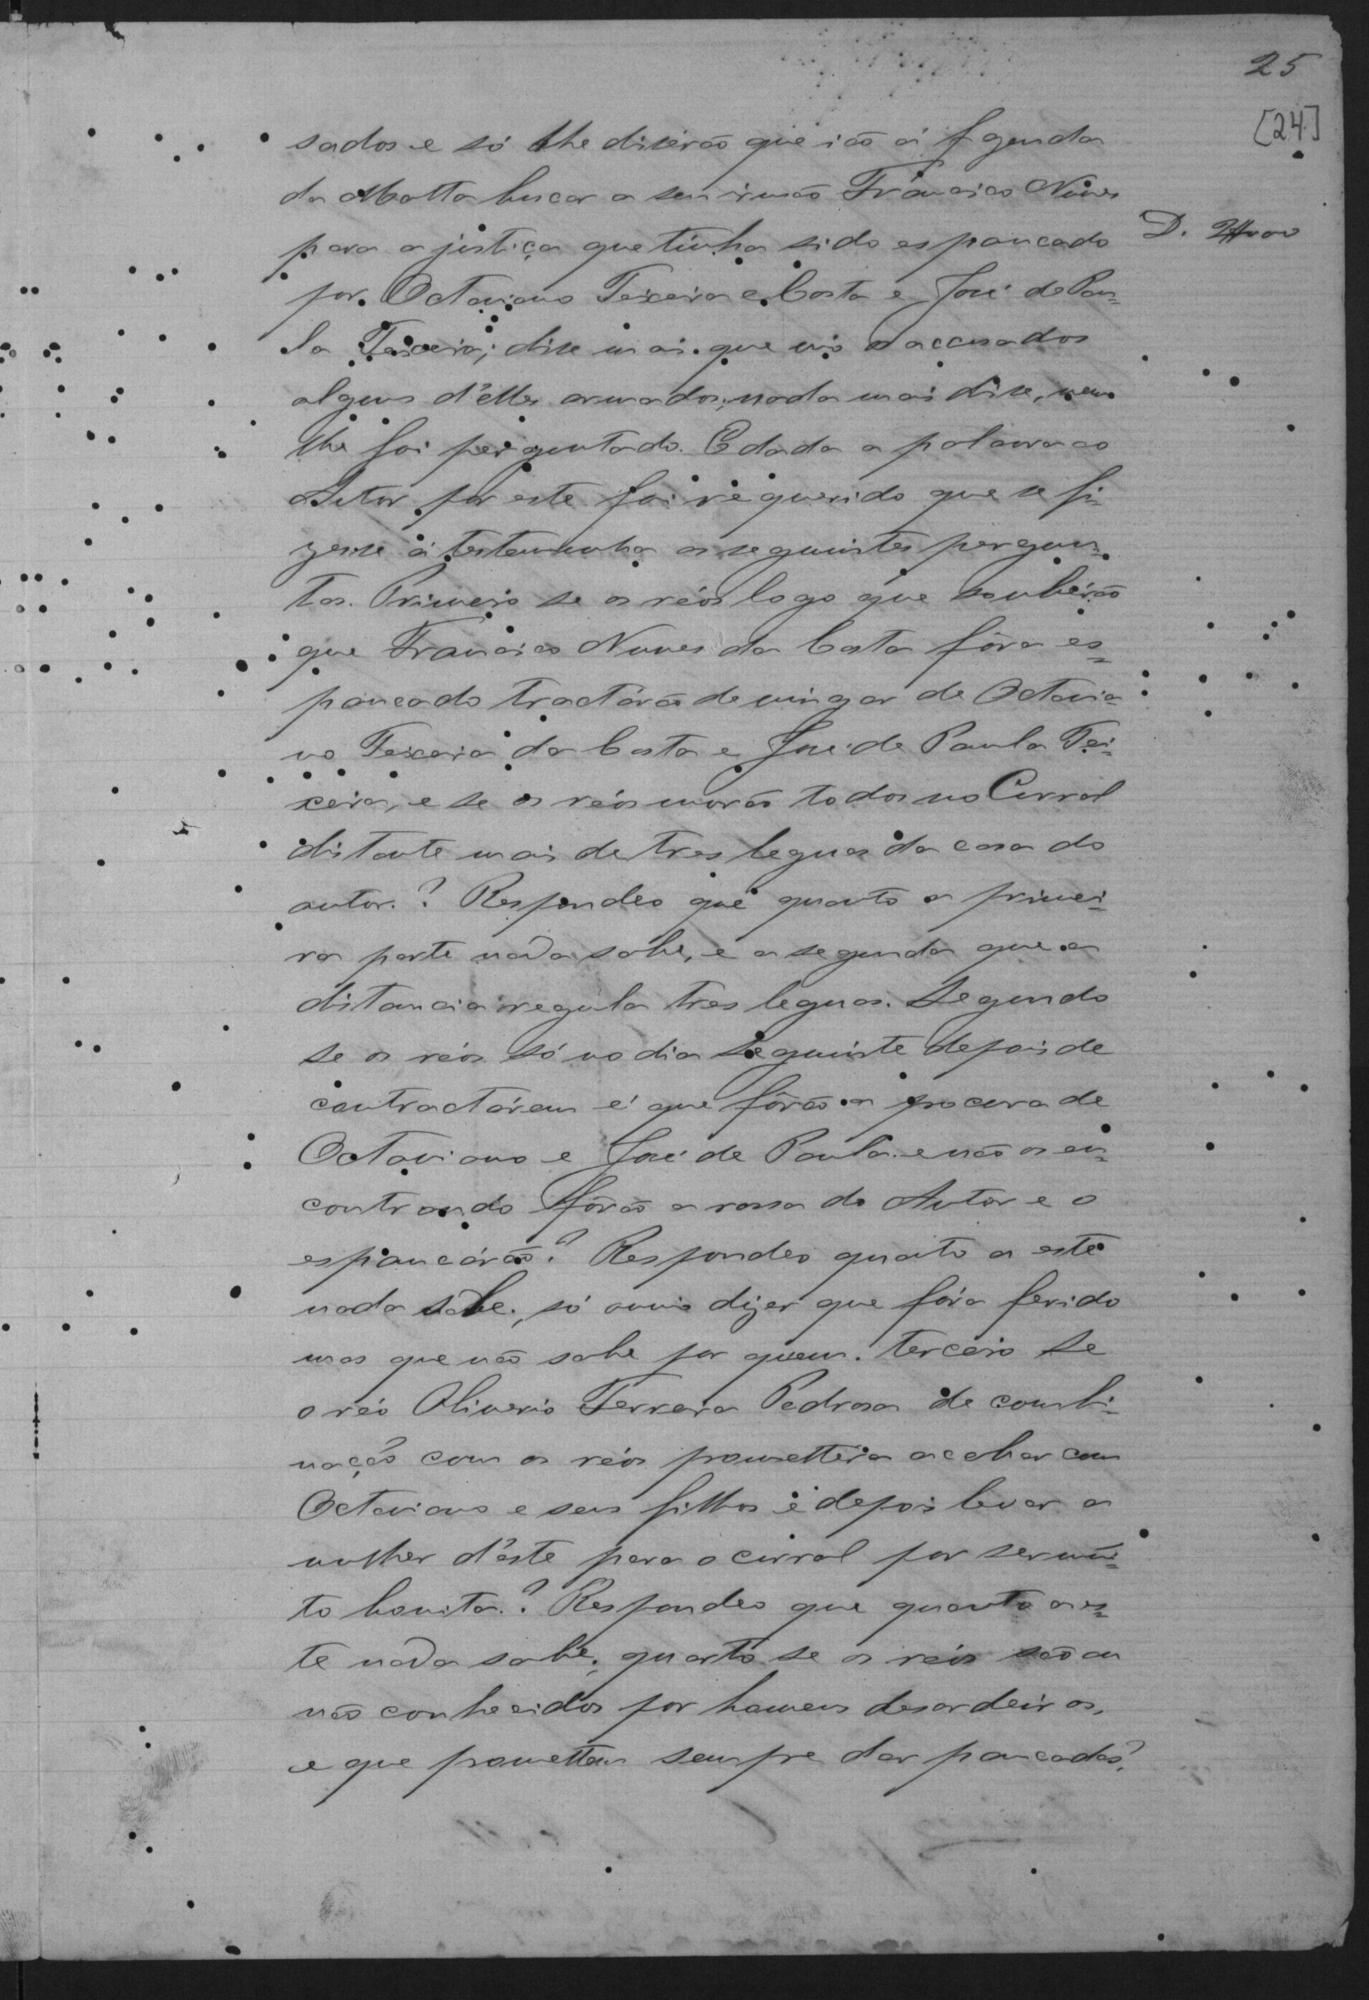 25
[24]
sados e só lhe disérão que ião á Fazenda
da Matta buscar a seu irmão Francisco Nunes
para a justiça que tinha sido espancado
D.
por Octaviano Teixeira e Costa e José de Pau=
la Teixeira; disse mais que vio os accusados
alguns d'elles armados, nada mais disse, nem
lhe foi perguntado. E dada a palavra ao
Autor por este foi requerido que se fi=
zesse á testemunha as seguintes pergun=
tas. Primeiro se os réos logo que soubérão
que Francisco Nunes da Costa fôra es=
pancado tractárão de vingar de Octavia=
no Teixeira da Costa e José de Paula Tei=
xeira, e se os réos morão todos no Curral
distante mais de tres leguas da casa do
autor? Respondeo que quanto a primei=
ra parte nada sabe, e a segunda que a
distancia regula tres leguas. Segundo
se os réos só no dia seguinte depois de
contractárem é que fôrão a procura de
Octaviano e José de Paula e não os en=
contrando fôrão a rossa do Autor e o
espancárão? Respondeo quanto a este
nada sabe, só ouvio dizer que fôra ferido
mas que não sabe por quem. terceiro se
o réo Oliverio Ferreira Pedrosa de combi=
nação com os réos promettera acabar com
Octaviano e seus filhos e depois levar a
mulher d'este para o curral por ser mui=
to bonita? Respondeo que quanto a es=
te nada sabe; quarto se os réos são ou
não conhecidos por homens desordeiros,
e que promettem sempre dar pancadas?